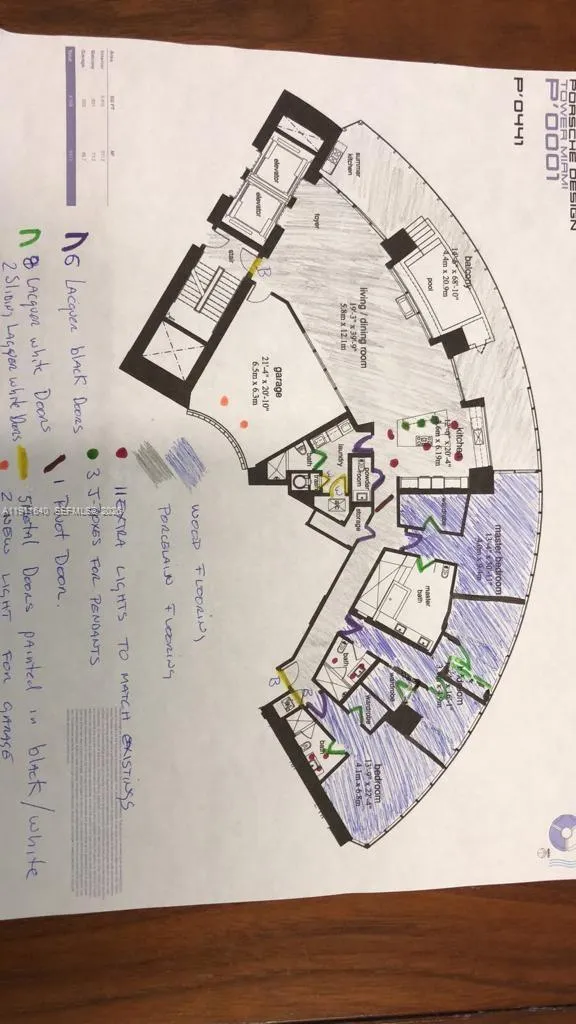 PORSCHE DESIGN
TOWER MIAMI
P'0001
P'0441
summer
kitchen
elevator
elevator
foyer
stair
B
balcony
pool
living / dining room
19'-3" x 39'-9"
5.8m x 12.1m
garage
21'-4" x 20'-10"
6.5m x 6.3m
kitchen
laundry
bath
powder
room
storage
wardrobe
master bedroom
master
bath
bath
wardrobe
wardrobe
B
B
bath
bedroom
13'-9" x 22'-4"
4.1m x 6.8m
WOOD FLOORING
PORCELAIN FLOORING
11 EXTRA LIGHTS TO MATCH EXISTINGS
3 J-BOXES FOR PENDANTS
1 PIVOT DOOR.
5 METAL DOORS painted in black/white
2 NEW LIGHT FOR GARAGE
6 LACQUER black DOORS
8 LACQUER white DOORS
2 Sliding LACQUER white DOORS